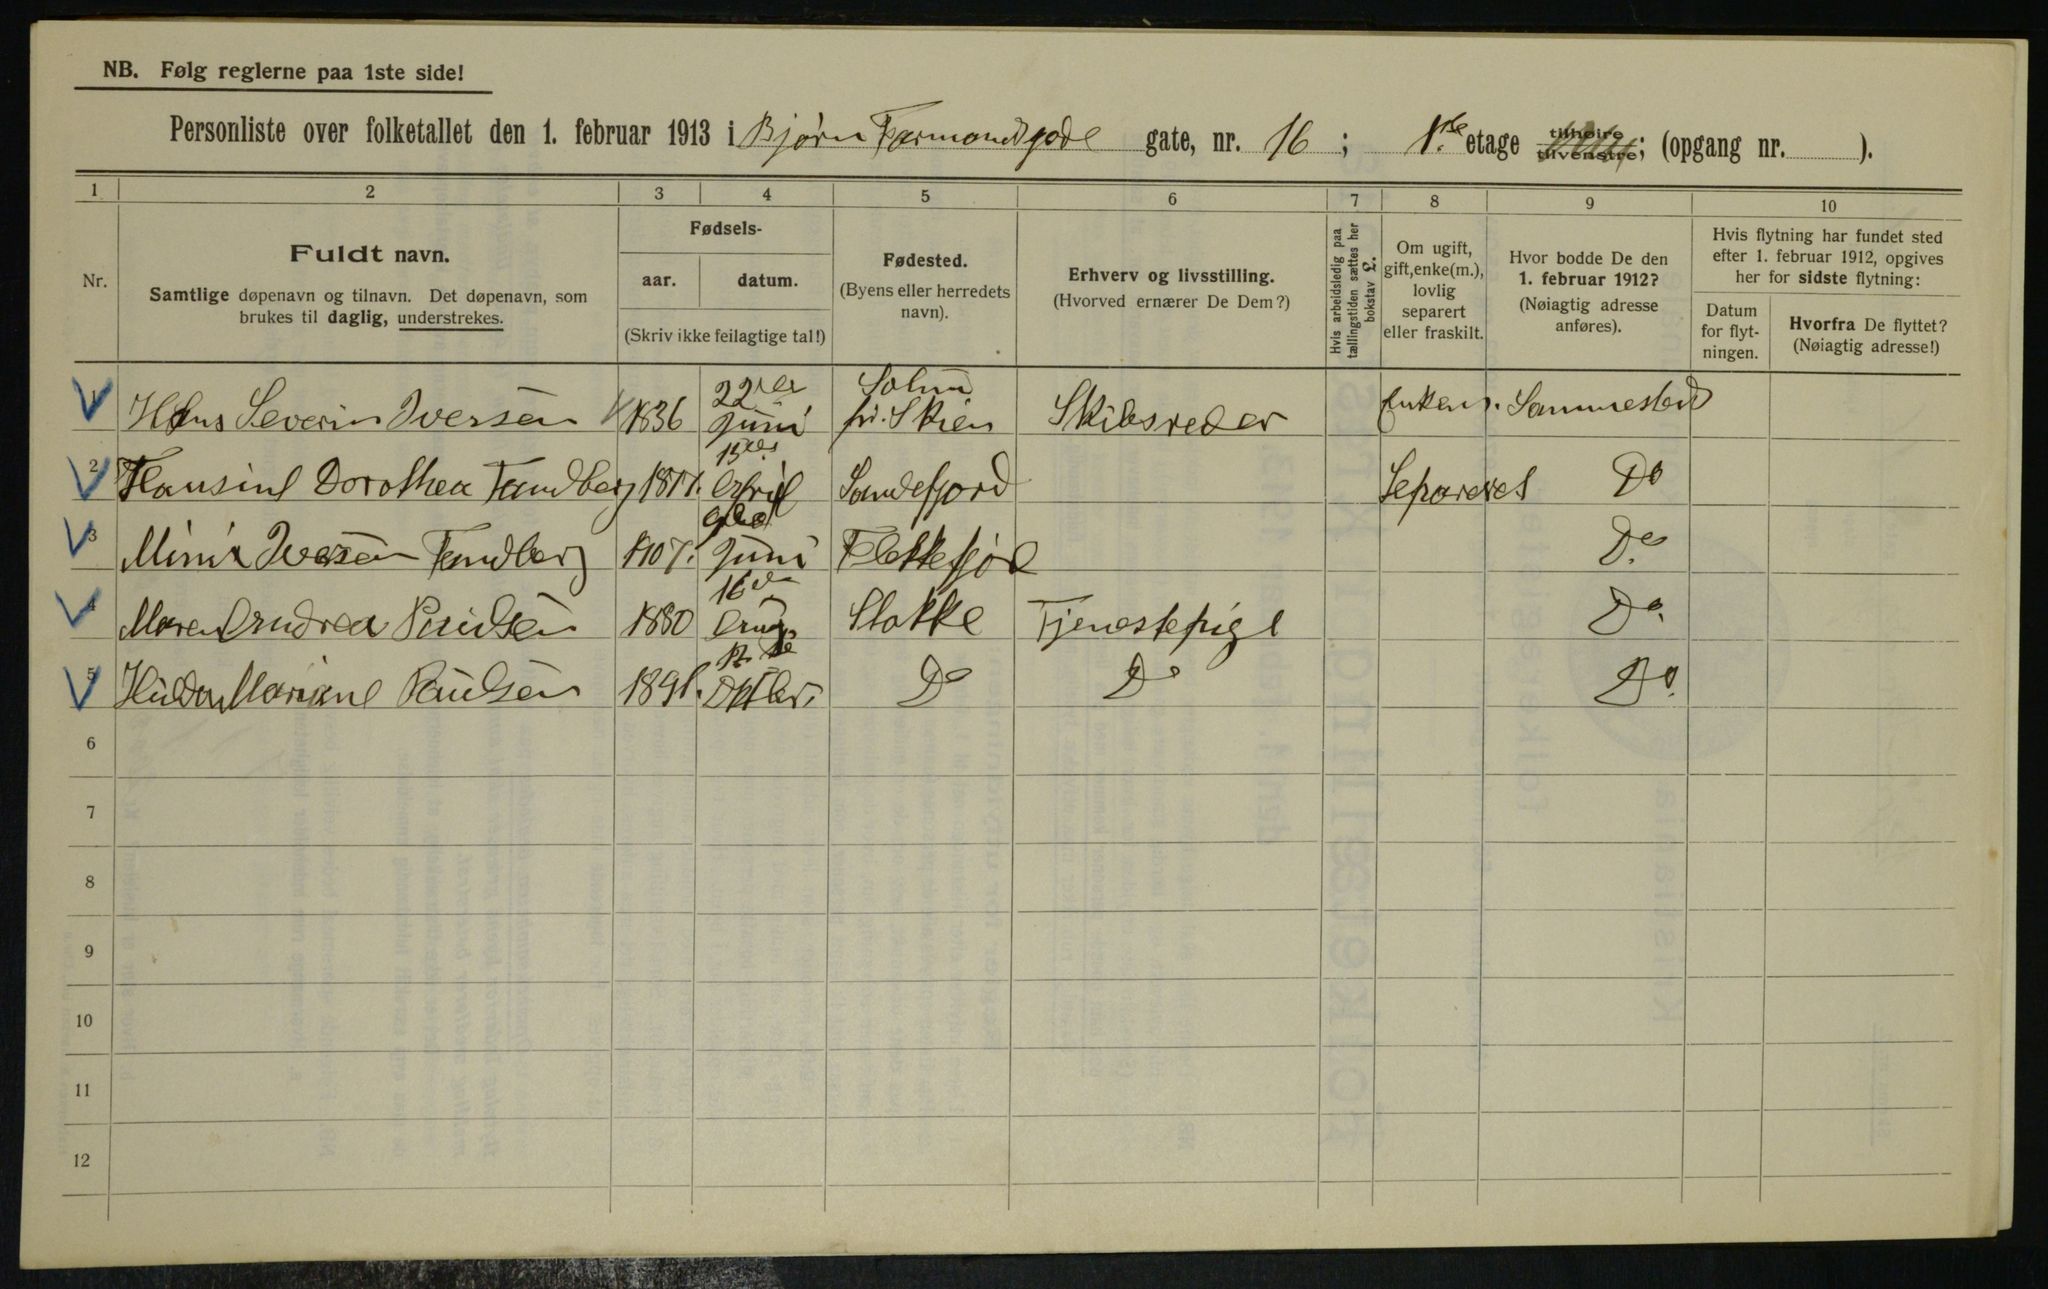 NB. Følg reglerne paa 1ste side!
Personliste over folketallet den 1. februar 1913 i Bjørn Farmandsgade gate, nr. 16 ; 1.ste etage tilhøire tilvenstre; (opgang nr. ).
1 2 3 4 5 6 7 8 9 10
Nr.
Fuldt navn.
Samtlige døpenavn og tilnavn. Det døpenavn, som
brukes til daglig, understrekes.
Fødsels-
aar. datum.
(Skriv ikke feilagtige tal!)
Fødested.
(Byens eller herredets
navn).
Erhverv og livsstilling.
(Hvorved ernærer De Dem?)
Hvis arbeidsledig paa
tællingstiden sættes her
bokstav L.
Om ugift,
gift, enke(m.),
lovlig
separert
eller fraskilt.
Hvor bodde De den
1. februar 1912?
(Nøiagtig adresse
anføres).
Hvis flytning har fundet sted
efter 1. februar 1912, opgives
her for sidste flytning:
Datum
for flyt-
ningen.
Hvorfra De flyttet?
(Nøiagtig adresse!)
1 Hans Severin Iversen 1836 22de Juni Solum pr. Skien Skibsreder Enkem. Sammested
2 Hansine Dorothea Tandberg 15de April Sandefjord Separeret Do
3 Iversen Tandberg Juni Flekkefjord Do
4 Maren Andrea Paulsen 1880 16de Stokke Tjenestepige Do
5 Hilda Mariane Paulsen 1891. Oktbr. Do Do Do.
6
7
8
9
10
11
12